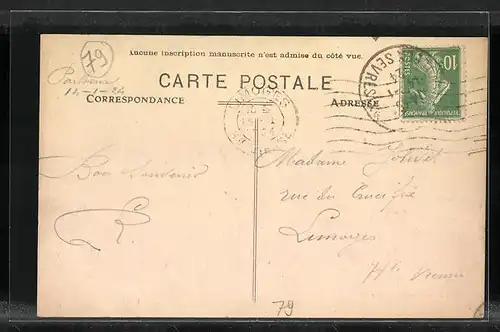 79
Aucune inscription manuscrite n'est admise du côté vue.
Parthenay
14-1-24
CARTE POSTALE
CORRESPONDANCE
ADRESSE
10
SEVRES
Bon Souvenir
R.
Madame
rue du Crucifix
Limoges
Hte Vienne
79